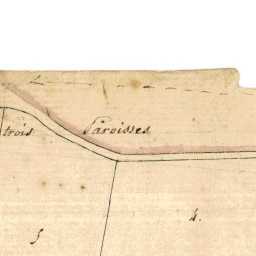 trois Paroisses
4.
5